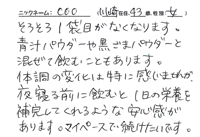 ニックネーム: COO 川崎在住・43歳・性別:女
そろそろ1袋目がなくなります。
青汁パウダーや黒ごまパウダーと
混ぜて飲むこともあります。
体調の変化は特に感じませんが、
夜寝る前に飲むと1日の栄養を
補完してくれるような安心感が
あります。マイペースで続けたいです。